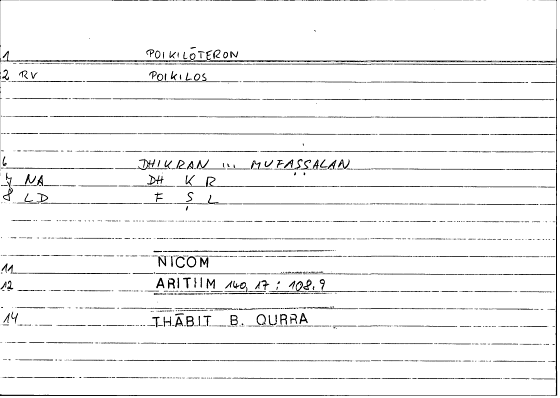 1 POIKILŌTERON
2 RV POIKILOS
6 DHIKRAN ... MUFAṢṢALAN
7 NA DH K R
8 LD F Ṣ L
11 NICOM
12 ARITIIM 140, 17 : 108, 9
14 THĀBIT B. QURRA